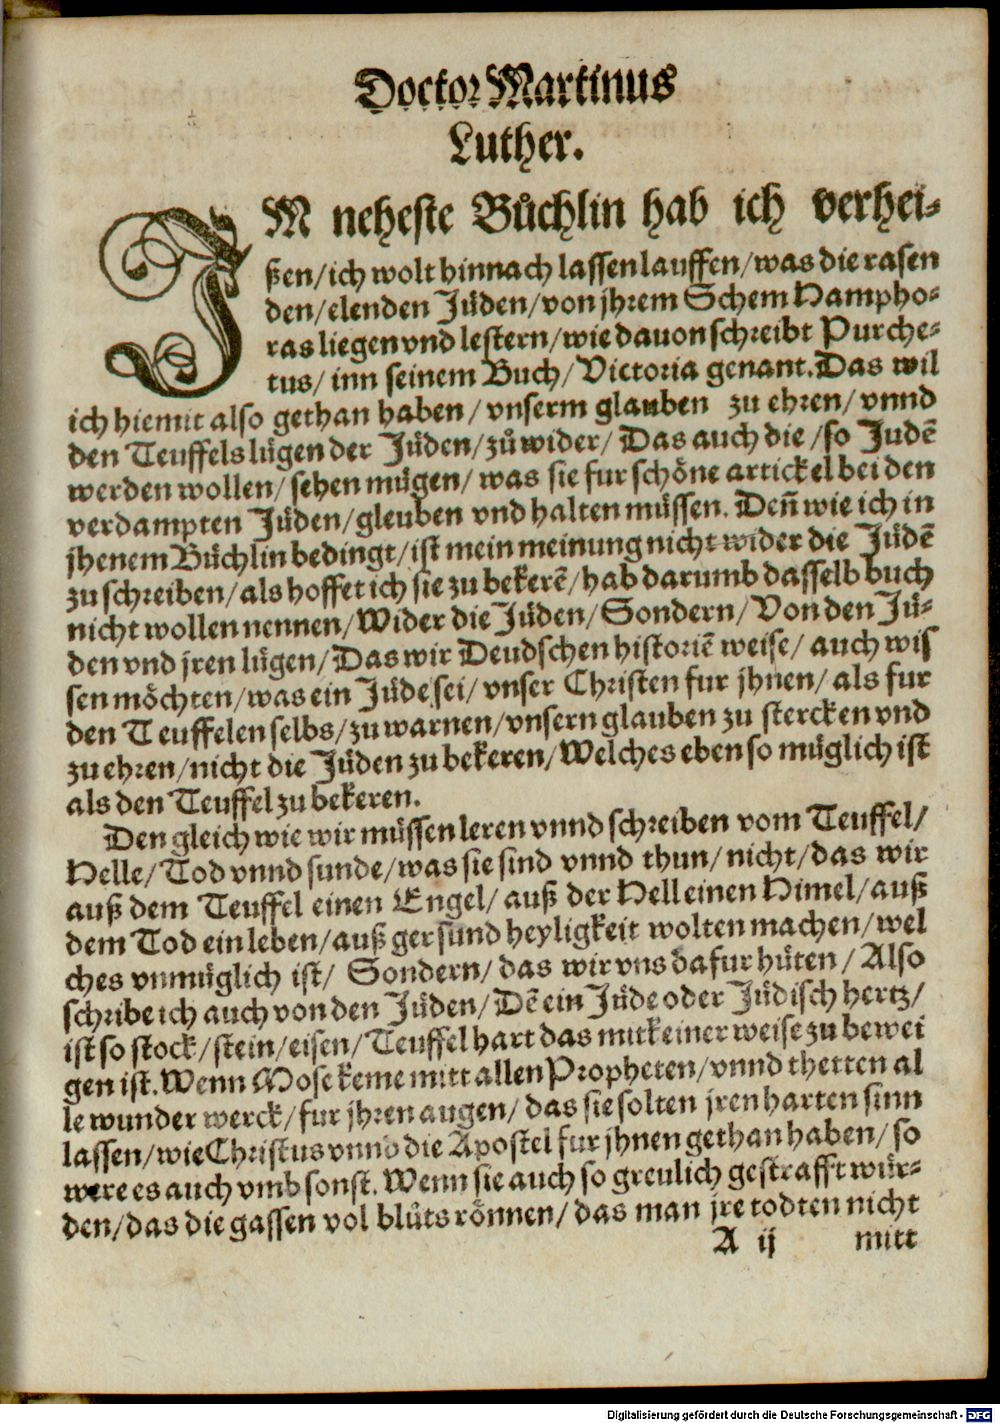 Doctor Martinus
Luther.
IM neheste Bůchlin hab ich verhei⸗
ßen/ich wolt hinnach lassen lauffen/was die rasen
den/elenden Jůden/von jhrem Schem Hampho⸗
ras liegen vnd lestern/wie dauon schreibt Purche⸗
tus/inn seinem Buch/Victoria genant. Das wil
ich hiemit also gethan haben/vnserm glauben zu ehren/vnnd
den Teuffels lůgen der Jůden/zů wider/Das auch die/so Judē
werden wollen/sehen můgen/was sie fur schöne artickel bei den
verdampten Jůden/gleuben vnd halten můssen. Deñ wie ich in
jhenem Bůchlin bedingt/ist mein meinung nicht wider die Jůdē
zu schreiben/als hoffet ich sie zu bekerē/hab darumb dasselb buch
nicht wollen nennen/Wider die Jůden/Sondern/Von den Jů⸗
den vnd jren lůgen/Das wir Deudschen historiē weise/auch wis
sen möchten/was ein Jůde sei/vnser Christen fur jhnen/als fur
den Teuffelen selbs/zu warnen/vnsern glauben zu stercken vnd
zu ehren/nicht die Jůden zu bekeren/Welches eben so můglich ist
als den Teuffel zu bekeren.
Den gleich wie wir můssen leren vnnd schreiben vom Teuffel/
Helle/Tod vnnd sunde/was sie sind vnnd thun/nicht/das wir
auß dem Teuffel einen Engel/auß der Hell einen Himel/auß
dem Tod ein leben/auß ger sund heyligkeit wolten machen/wel
ches vnmůglich ist/Sondern/das wir vns dafur hůten/Also
schribe ich auch von den Jůden/Dē ein Jůde oder Jůdisch hertz/
ist so stock/stein/eisen/Teuffel hart das mit keiner weise zu bewei
gen ist. Wenn Mose keme mitt allen Propheten/vnnd thetten al
le wunder werck/fur jhren augen/das sie solten jren harten sinn
lassen/wie Christus vnnd die Apostel fur jhnen gethan haben/so
were es auch vmb sonst. Wenn sie auch so greulich gestrafft wůr⸗
den/das die gassen vol blůts rönnen/das man jre todten nicht
A ij mitt
Digitalisierung gefördert durch die Deutsche Forschungsgemeinschaft - DFG